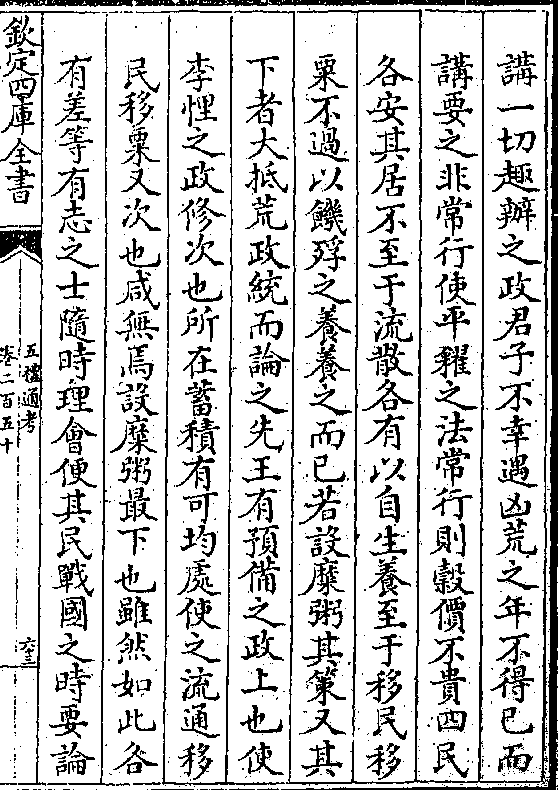 講一切趣辦之政君子不幸遇凶荒之年不得已而
講要之非常行使平糴之法常行則糓價不貴四民
各安其居不至于流散各有以自生養至于移民移
粟不過以饑殍之養養之而已若設糜粥其策又其
下者大抵荒政統而論之先王有預備之政上也使
李悝之政修次也所在蓄積有可均處使之流通移
民移粟又次也咸無焉設糜粥最下也雖然如此各
有差等有志之士隨時理會便其民戰國之時要論
欽定四庫全書
五禮通考
卷二百五十
六三